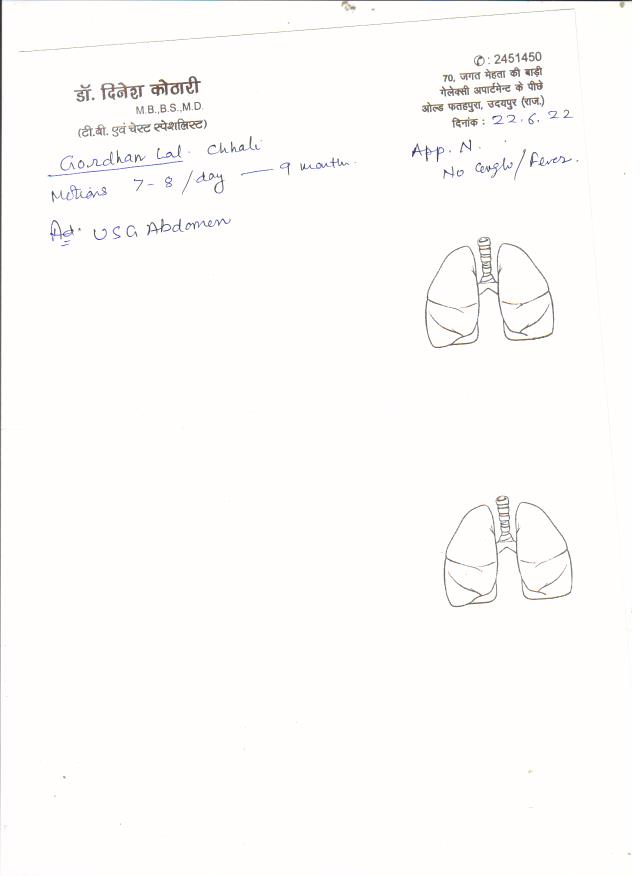 डॉ. दिनेश कोठारी
M.B.,B.S.,M.D.
(टी.बी. एवं चेस्ट स्पेशलिस्ट)
✆ : 2451450
70, जगत मेहता की बाड़ी
गेलेक्सी अपार्टमेन्ट के पीछे
ओल्ड फतहपुरा, उदयपुर (राज.)
दिनांक : 22.6.22
Gordhan Lal. Chhali
Motions 7-8 /day — 9 month.
App. N.
No Cough/Fever.
Ad. USG Abdomen